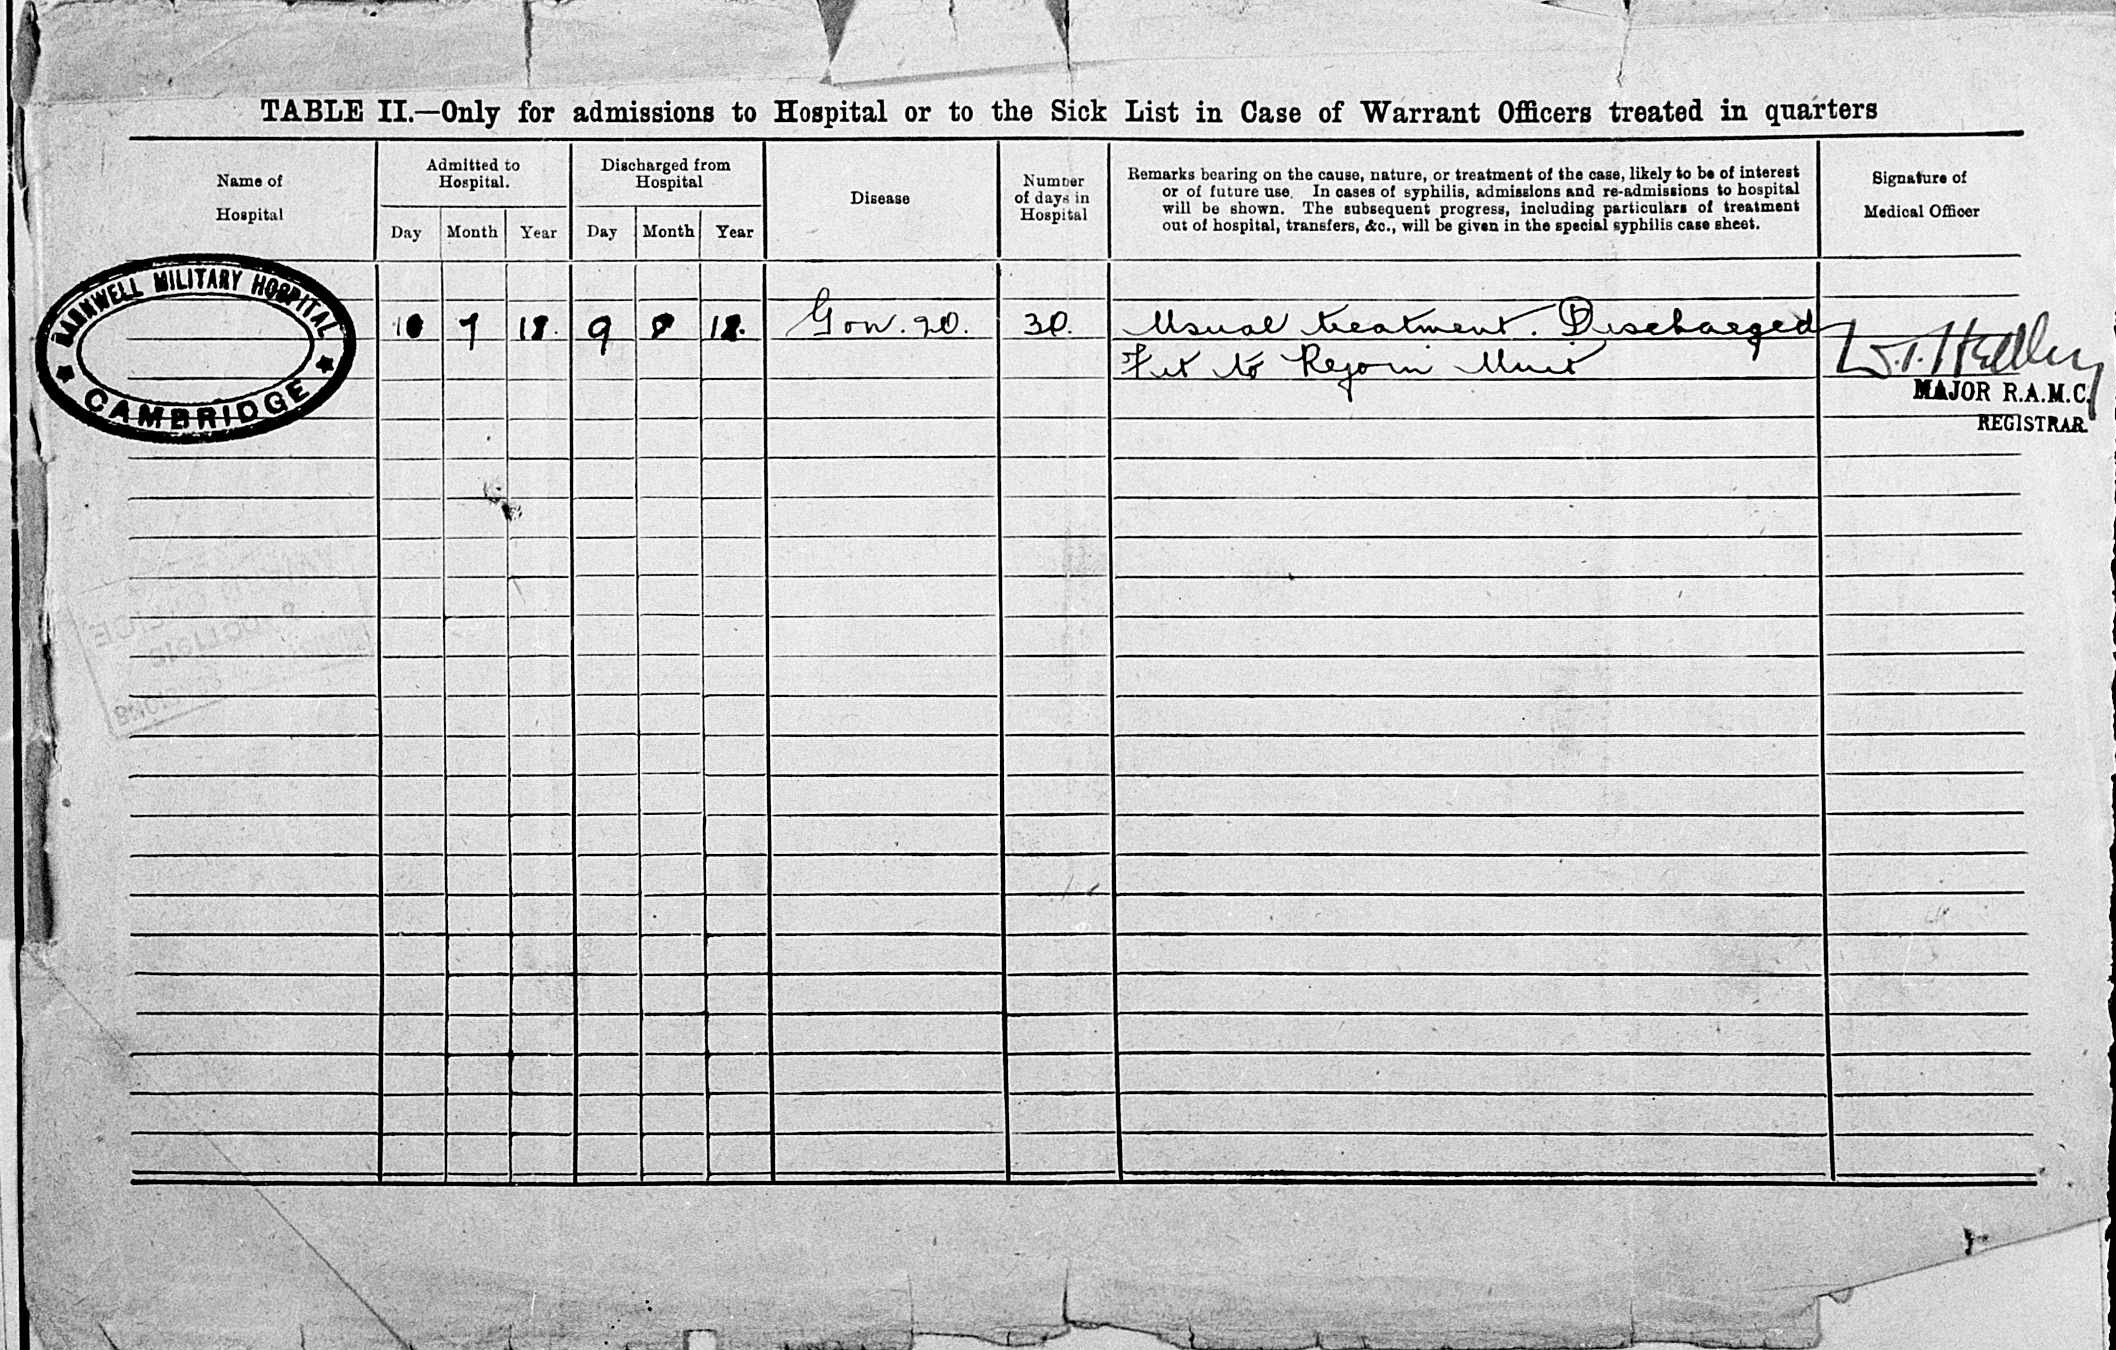 TABLE II.—Only for admissions to Hospital or to the Sick List in Case of Warrant Officers treated in quarters
Name of
Hospital
Admitted to
Hospital.
Day Month Year
Discharged from
Hospital
Day Month Year
Disease
Number
of days in
Hospital
Remarks bearing on the cause, nature, or treatment of the case, likely to be of interest
or of future use. In cases of syphilis, admissions and re-admissions to hospital
will be shown. The subsequent progress, including particulars of treatment
out of hospital, transfers, &c., will be given in the special syphilis case sheet.
Signature of
Medical Officer
BARNWELL MILITARY HOSPITAL
CAMBRIDGE
10 7 18. 9 8 18. Gon. 90. 30. Usual treatment. Discharged
Fit to Rejoin Unit
MAJOR R.A.M.C.
REGISTRAR.